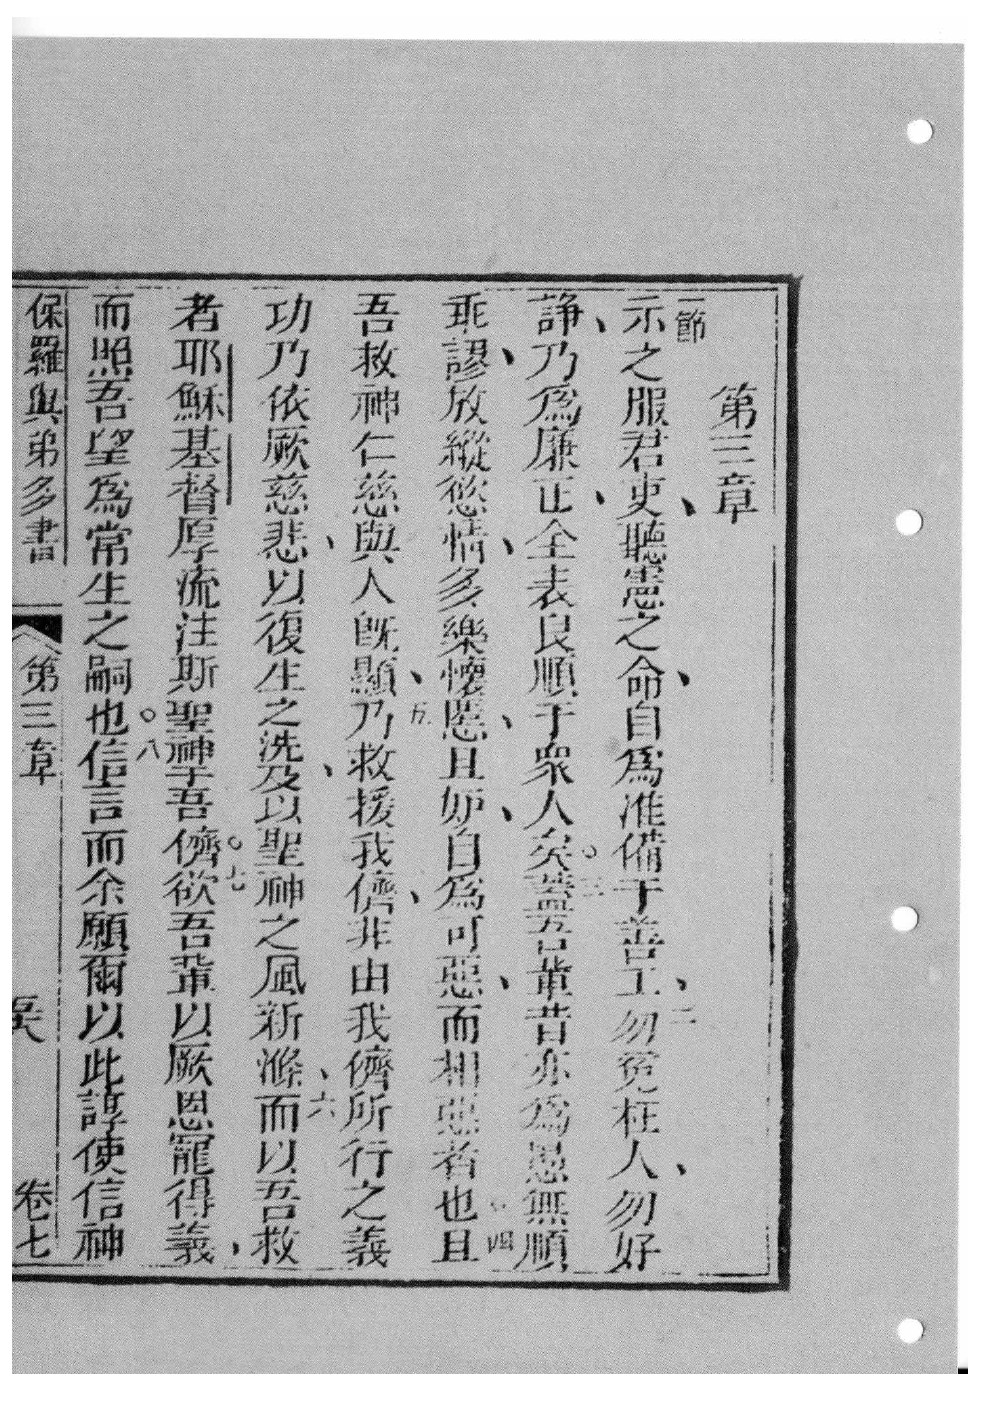 第三章
一節示之服君吏、聽憲之命、自為准備于善工、二勿冤枉人、勿好
諍、乃為廉正、全表良順于衆人矣。三蓋吾輩昔亦為愚無順
乖謬、放縱慾情、多樂懷慝、且妒、自為可惡、而相惡者也。四且
吾救神仁慈與人既顯、五乃救援我儕、非由我儕所行之義
功、乃依厥慈悲、以復生之洗、及以聖神之風新滌、六而以吾救
者耶穌基督厚流注斯聖神于吾儕。七欲吾輩以厥恩寵得義、
而照吾望為常生之嗣也。八信言而余願爾以此諄使信神
保羅與弟多書 第三章 卷七